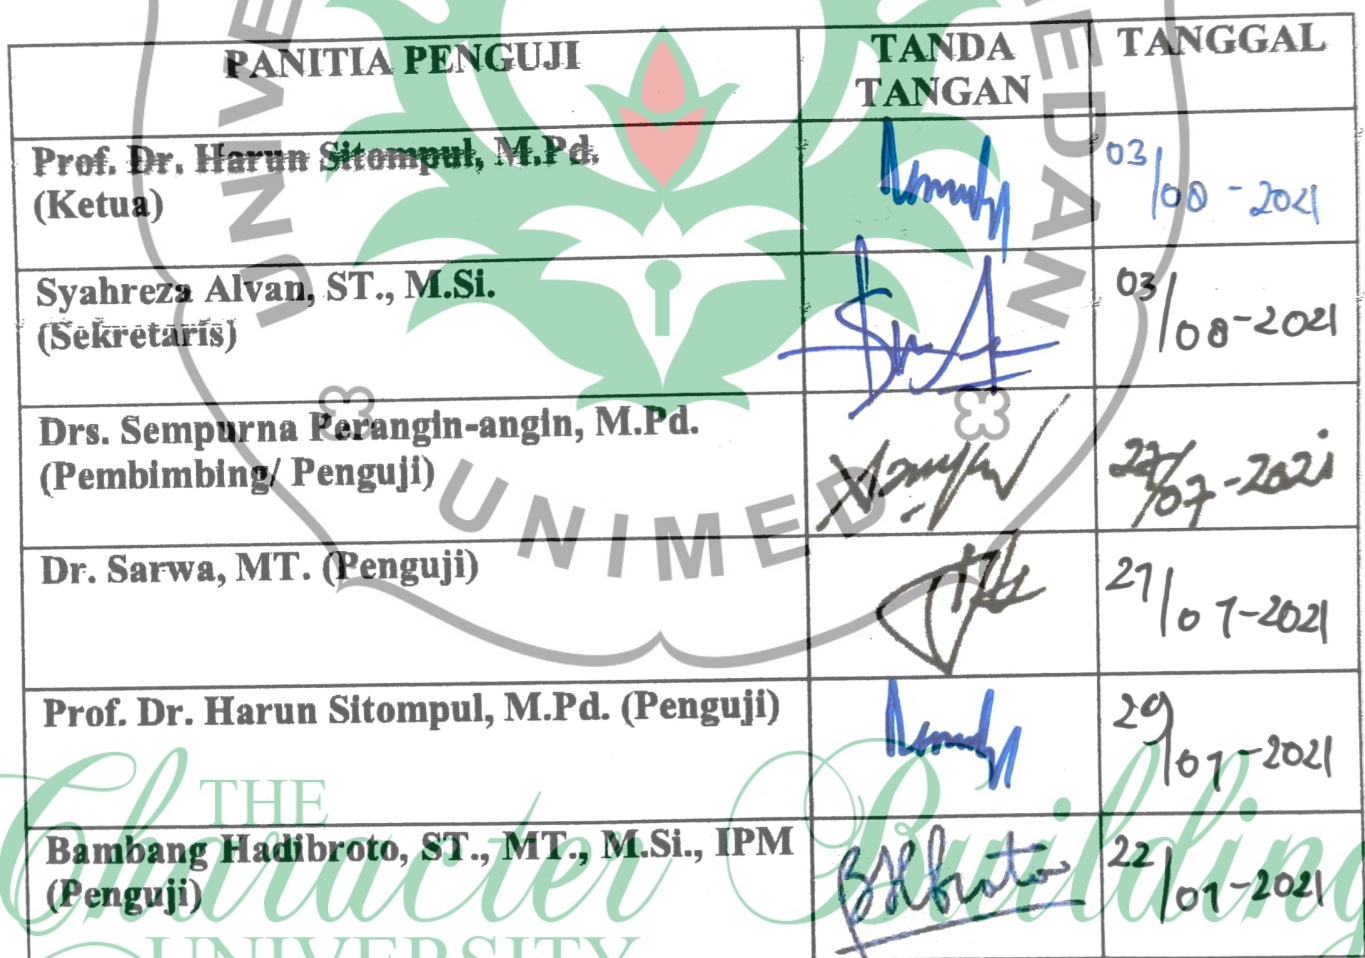 PANITIA PENGUJI TANDA TANGAN TANGGAL
Prof. Dr. Harun Sitompul, M.Pd.
(Ketua)
03/08-2021
Syahreza Alvan, ST., M.Si.
(Sekretaris)
03/08-2021
Drs. Sempurna Perangin-angin, M.Pd.
(Pembimbing/ Penguji)
27/07-2021
Dr. Sarwa, MT. (Penguji)
27/07-2021
Prof. Dr. Harun Sitompul, M.Pd. (Penguji)
29/07-2021
Bambang Hadibroto, ST., MT., M.Si., IPM
(Penguji)
22/07-2021
UNIMED
THE
Character Building
UNIVERSITY